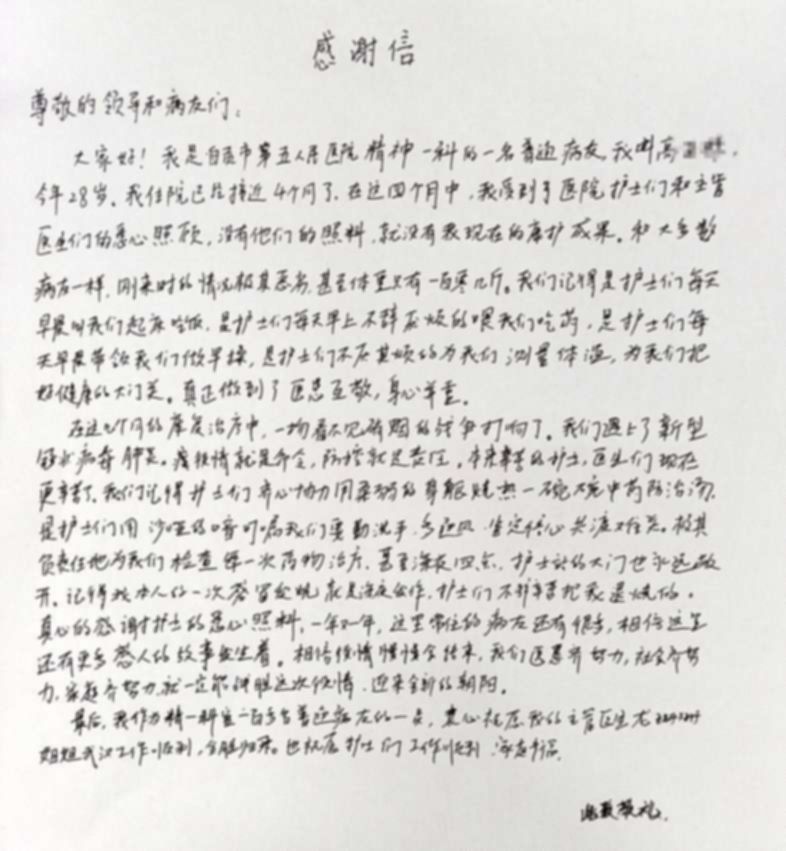 感谢信
尊敬的领导和病友们:
大家好!我是自贡市第五人民医院精神一科的一名普通病友,我叫高
今年28岁。我住院已经接近4个月了,在这四个月中,我受到了医院护士们和主管
医生们的悉心照顾,没有他们的照料,就没有我现在的康护成果。和大多数
病友一样,刚来时的情况极其恶劣,甚至体重只有一百零几斤。我们记得是护士们每天
早晨叫我们起床吃饭,是护士们每天早上不辞麻烦的喂我们吃药,是护士们每
天早晨带领我们做早操,是护士们不厌其烦的为我们测量体温,为我们把
好健康的大门关。真正做到了医患互敬,身心并重。
在这几个月的康复治疗中,一场看不见硝烟的战争打响了。我们遇上了新型
冠状病毒肺炎。疫情就是命令,防控就是责任。本来辛苦的护士,医生们现在
更辛苦了。我们记得护士们齐心协力用柔弱的身躯烧热一碗碗中药防治汤,
是护士们用沙哑的嗓音叮嘱我们要勤洗手,多通风,坚定信心共渡难关。极其
负责任地为我们检查每一次药物治疗,甚至深夜四点,护士站的大门也永远敞
开。记得我本人的一次感冒发烧就是深夜,护士们不辞辛苦把我退烧的。
真心的感谢护士的悉心照料,一年又一年,这里常住的病友还有很多,相信这里
还有更多感人的故事发生着。相信疫情慢慢会结束,我们医患齐努力,社会齐努
力,家庭齐努力,就一定能战胜这次疫情,迎来全新的朝阳。
最后,我作为精一科室一百多名普通病友的一员,衷心祝愿我的主管医生龙
姐姐武汉工作顺利,全胜归来。也祝愿护士们工作顺利,家庭幸福。
此致敬礼。